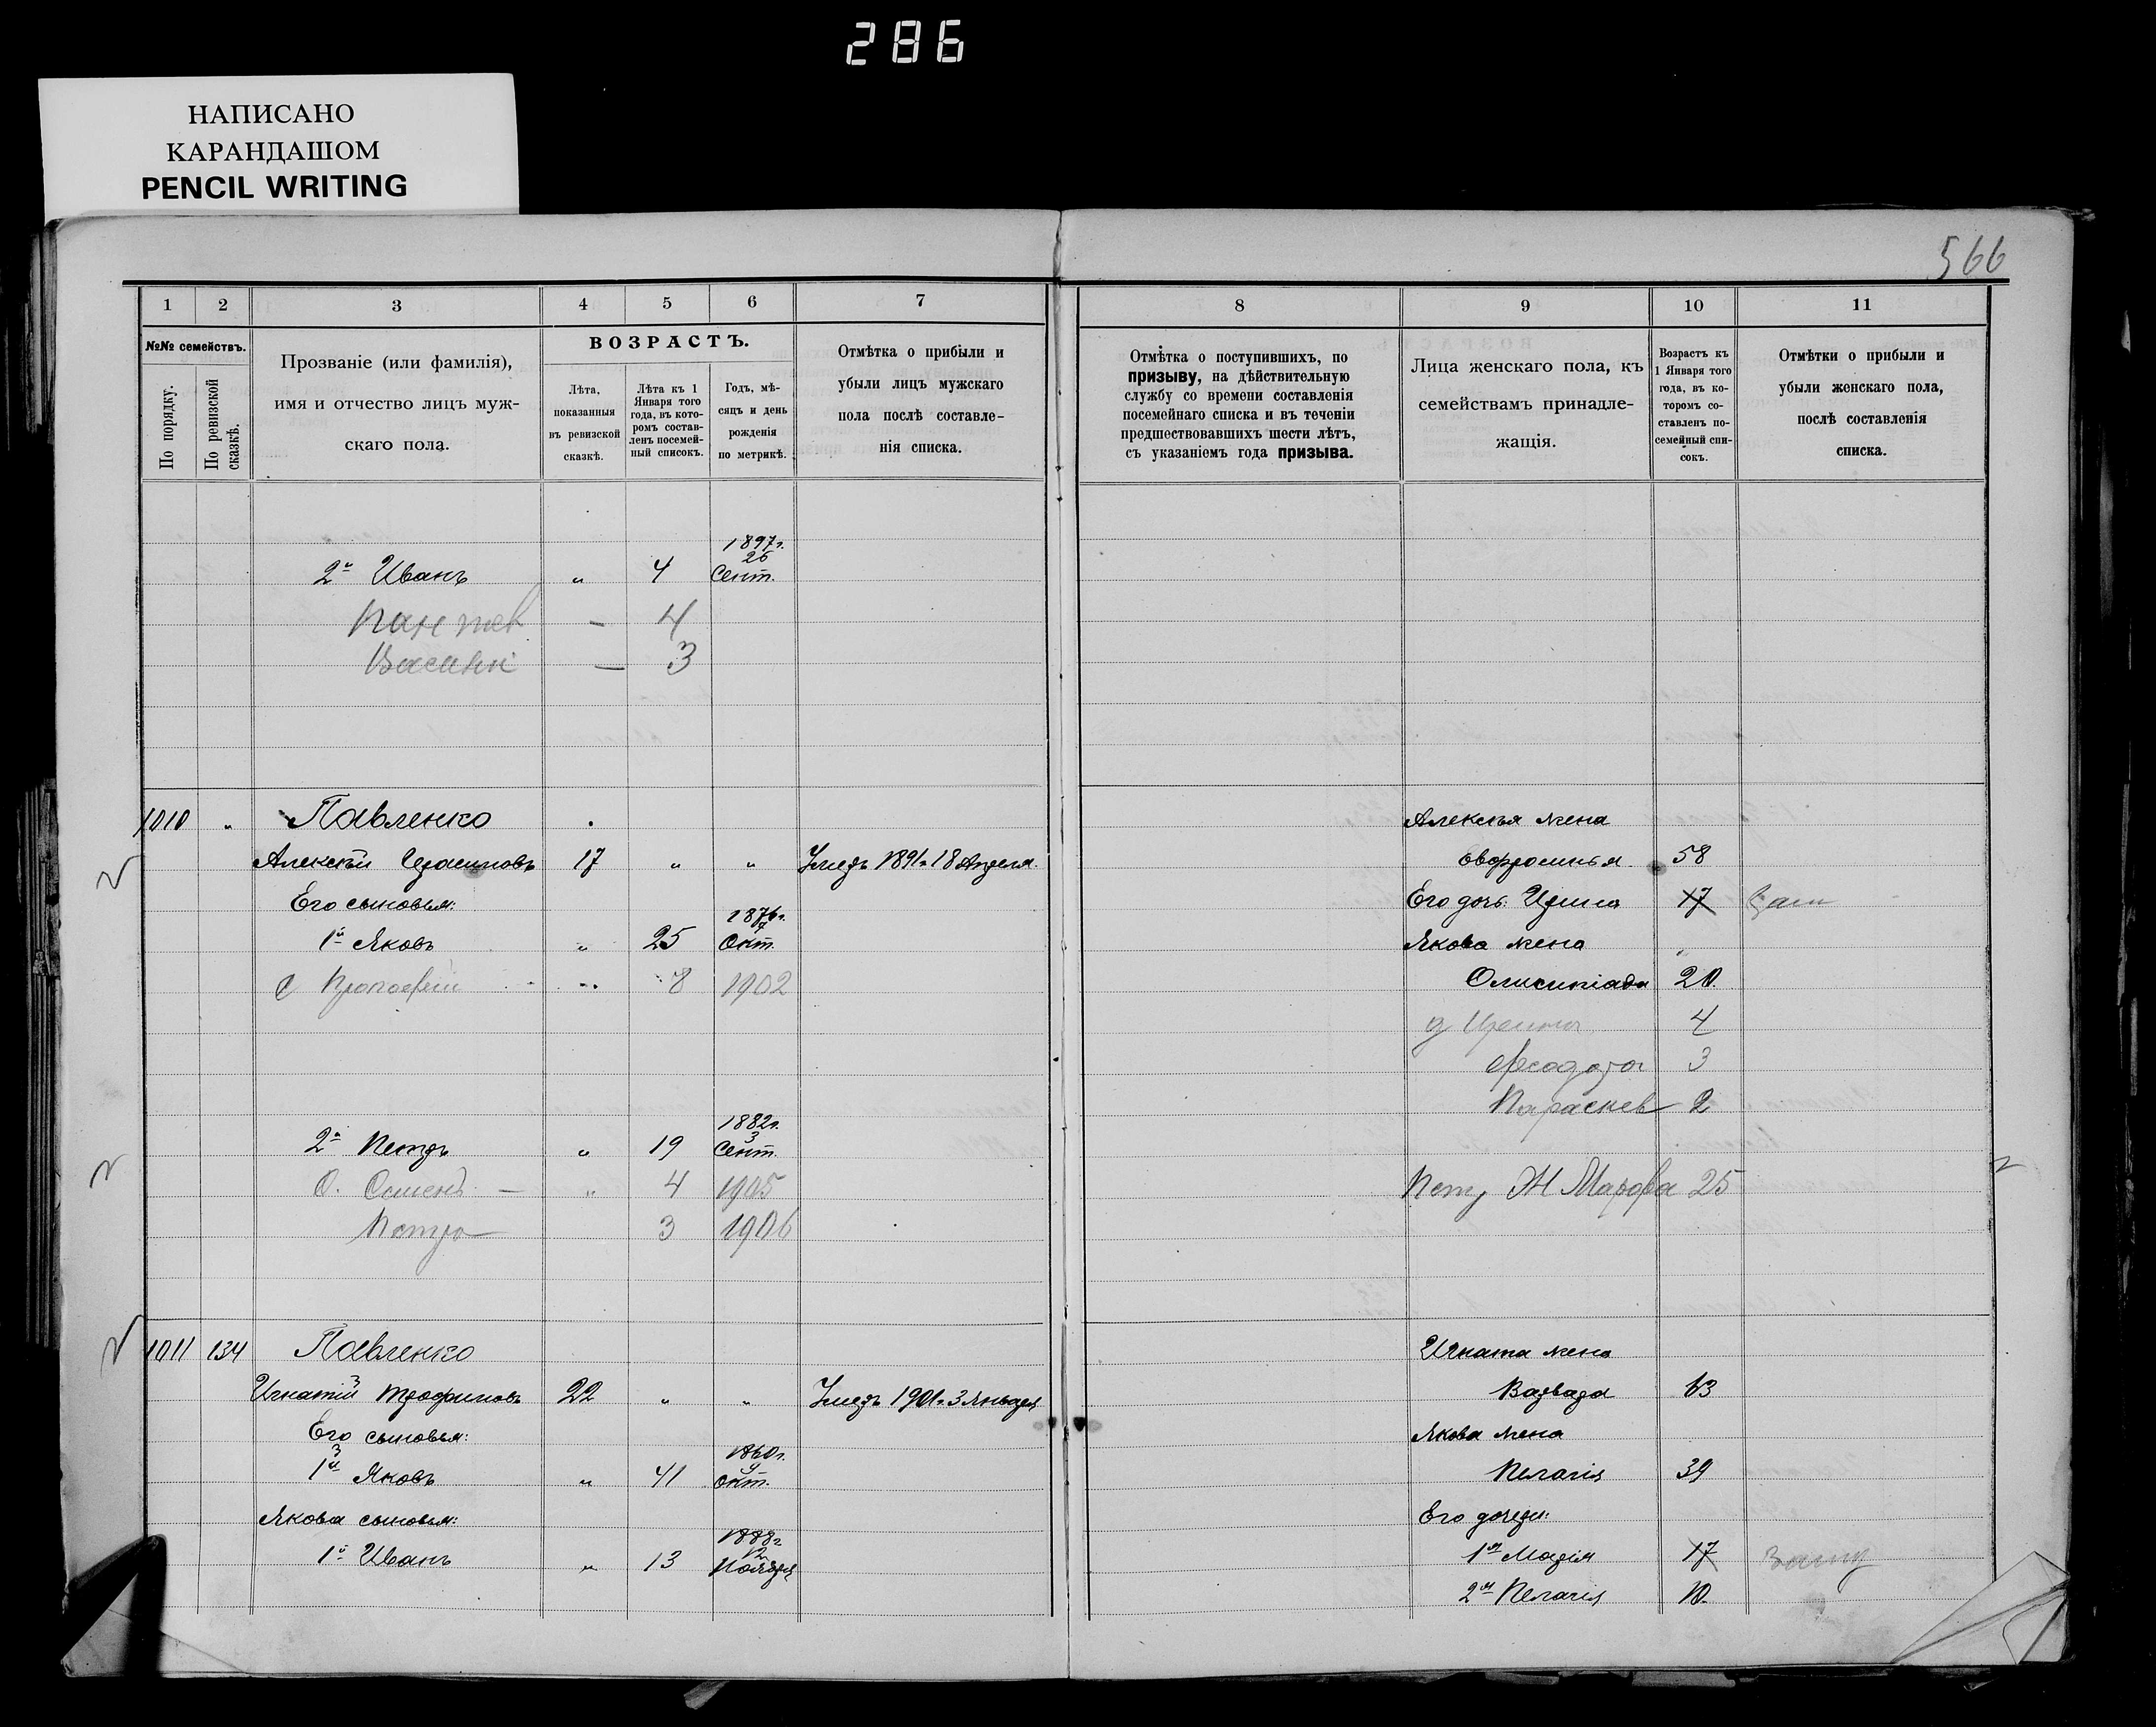 286
НАПИСАНО
КАРАНДАШОМ
PENCIL WRITING
566
1 2 3 4 5 6 7 8 9 10 11
№№ семействъ.
По порядку.
По ревизской сказкѣ.
Прозваніе (или фамилія),
имя и отчество лицъ муж-
скаго пола.
ВОЗРАСТЪ.
Лѣта,
показанныя
въ ревизской
сказкѣ.
Лѣта къ 1
Января того
года, въ кото-
ромъ состав-
ленъ посемей-
ный списокъ.
Годъ, мѣ-
сяцъ и день
рожденія
по метрикѣ.
Отмѣтка о прибыли и
убыли лицъ мужскаго
пола послѣ составле-
нія списка.
Отмѣтка о поступившихъ, по
призыву, на дѣйствительную
службу со времени составленія
посемейнаго списка и въ теченіи
предшествовавшихъ шести лѣтъ,
съ указаніемъ года призыва.
Лица женскаго пола, къ
семействамъ принадле-
жащія.
Возрастъ къ
1 Января того
года, въ ко-
торомъ со-
ставленъ по-
семейный спи-
сокъ.
Отмѣтки о прибыли и
убыли женскаго пола,
послѣ составленія
списка.
1897г.
26
2й Иванъ " 4 Сент.
— 4
Василий — 3
1010 " Павленко Алексѣя жена
Алексѣй Герасимовъ 17 " " Умеръ 1891г. 18 Апреля. Евфросинья 58
Его сыновья: Его дочь: Ирина 17
1876г.
1й Яковъ " 25 Окт. Якова жена "
с Прокофий 8 1902 Олимпіада 20.
д Ирина 4
Феодора 3
Параскев 2
1882г.
3
2й Петръ " 19 Сент.
Семенъ — " 4 1905 Петр Ж Марфа 25
Петро 3 1906
1011 134 Павленко Игната жена
Игнатій 3 Трофимовъ 22 " " Умеръ 1901г. 3 Января Варвара 63
Его сыновья: Якова жена
1860г.
3
1й Яковъ " 41 Окт. Пелагія 39
Якова сыновья: Его дочери:
1888г.
12
1й Иванъ " 13 Ноября 1я Марія 17
2я Пелагія 10.